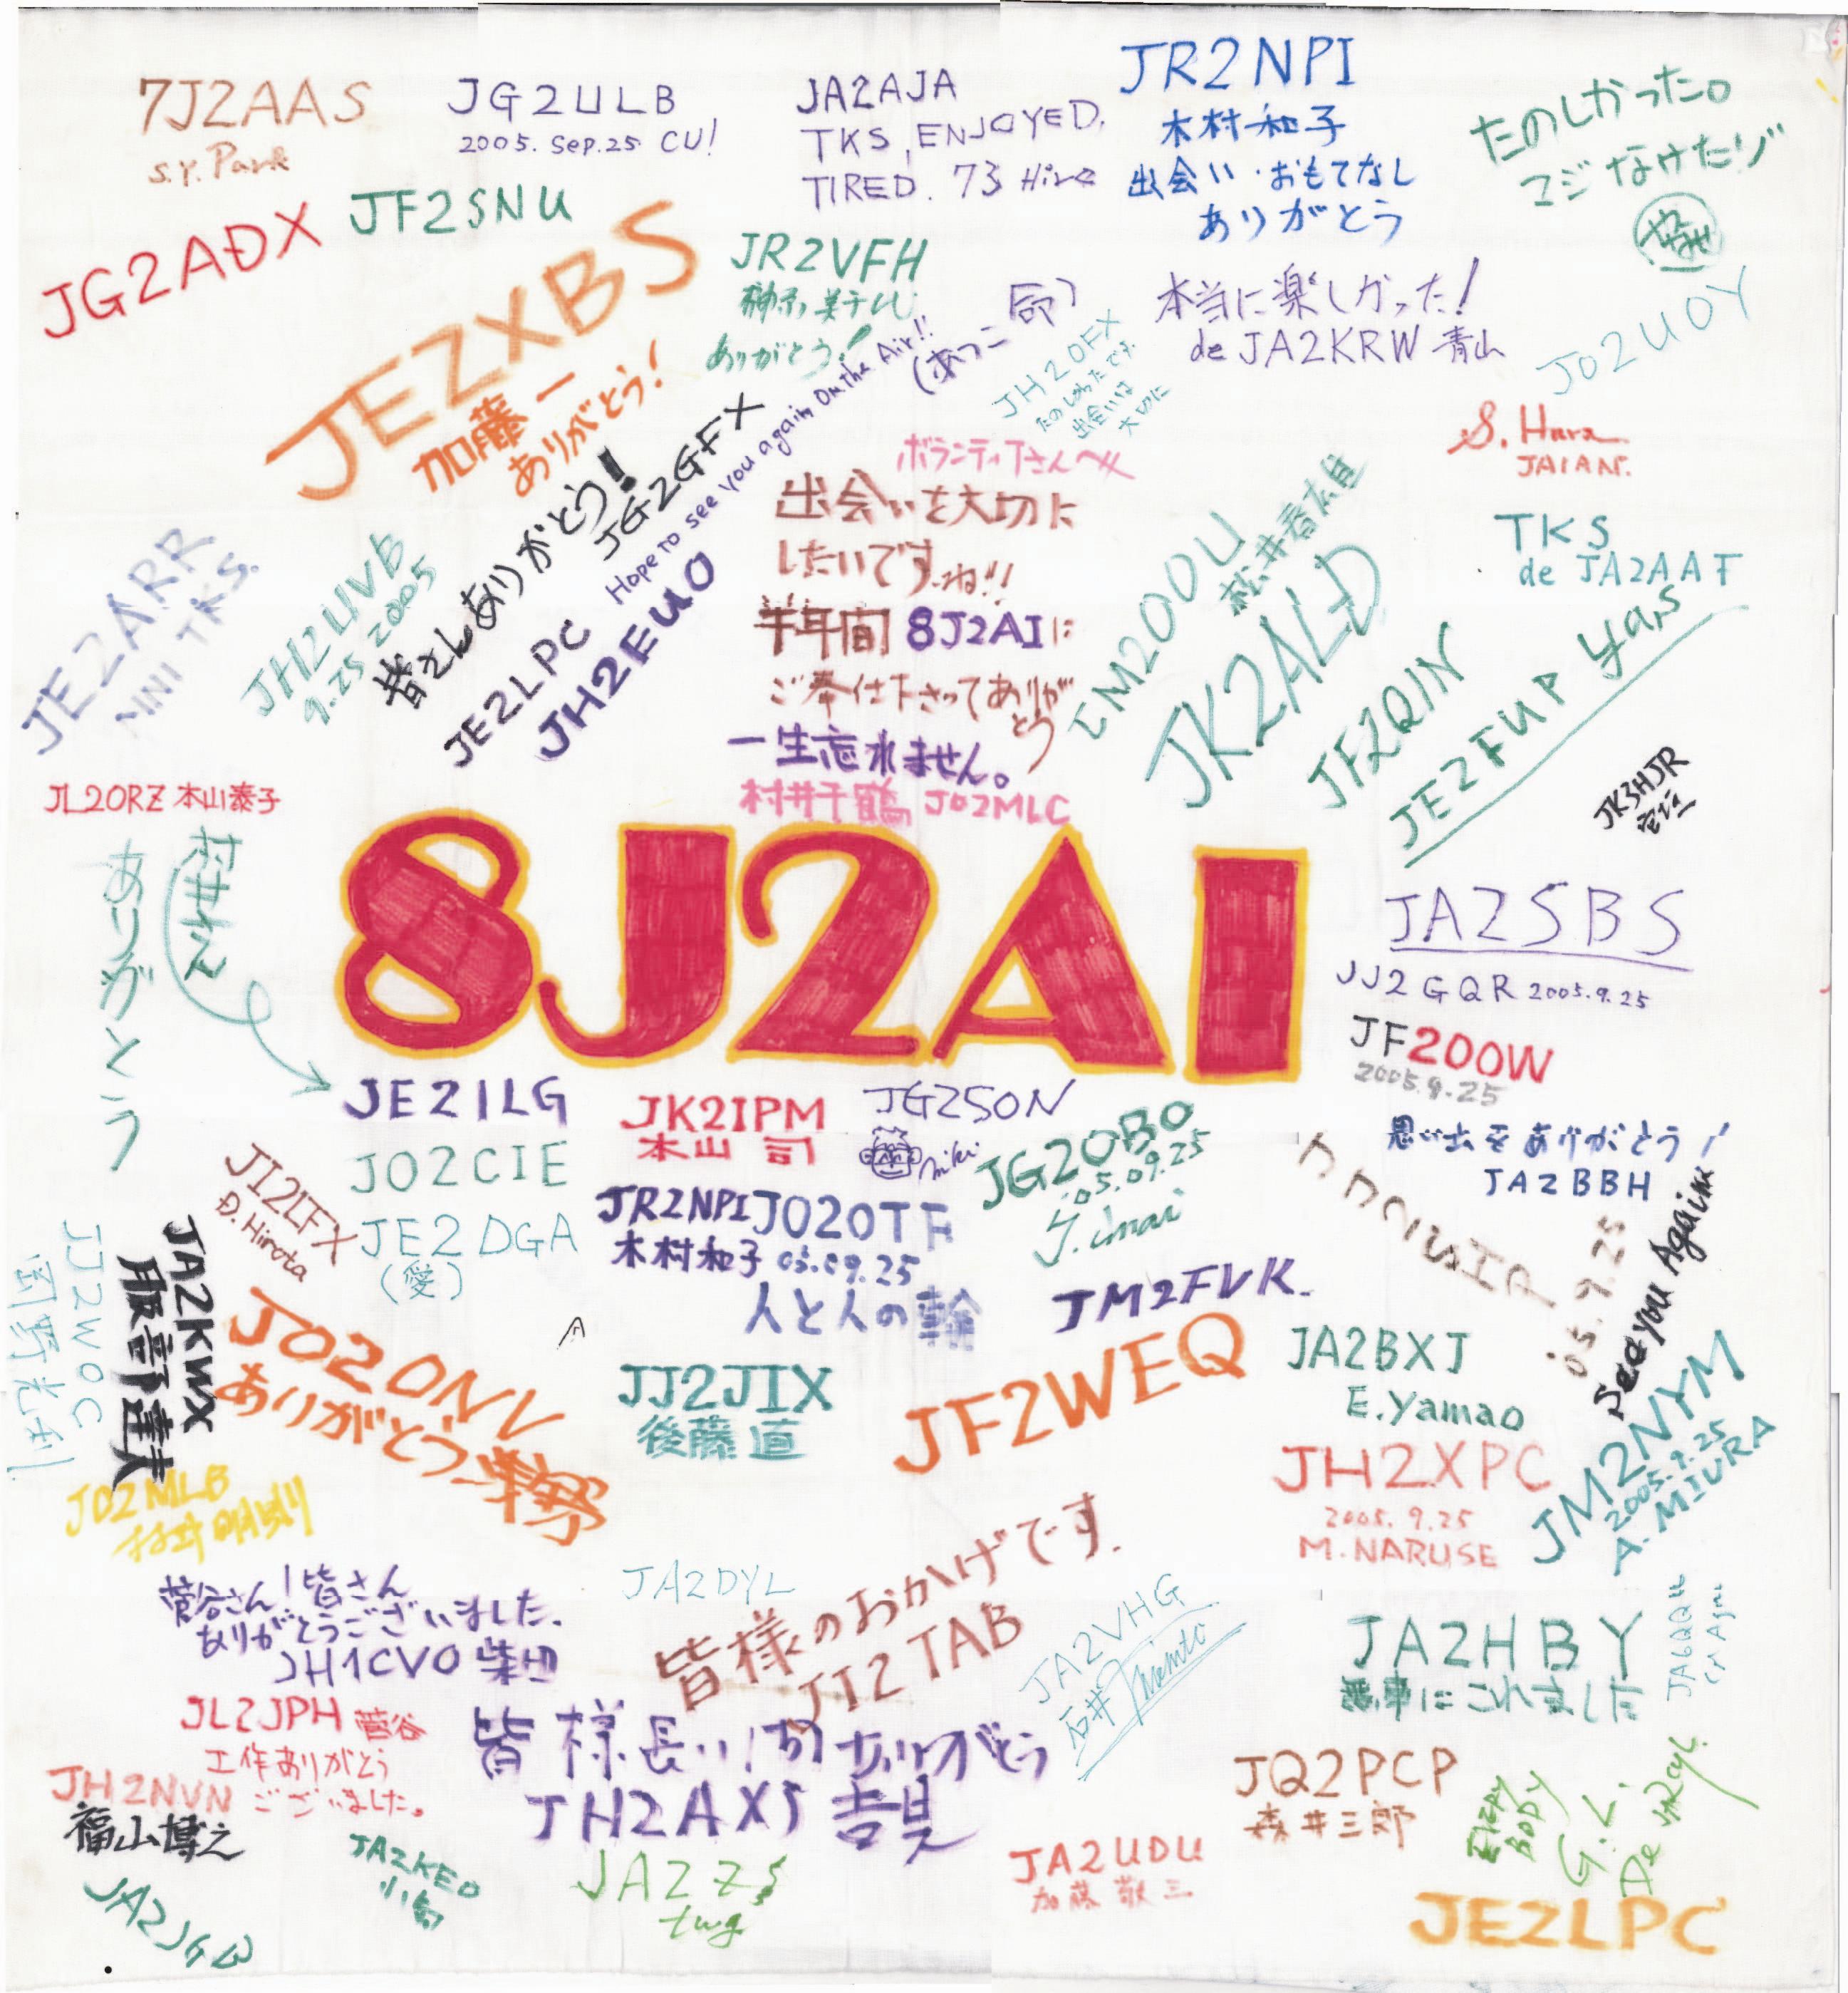 7J2AAS
S.Y. Park
JG2ULB
2005. Sep.25 CU!
JA2AJA
TKS, ENJOYED.
TIRED. 73 Hiro
JR2NPI
木村和子
出会い・おもてなし
ありがとう
たのしかった。
マジなけたゾ
JG2ADX
JF2SNU
JE2XBS
加藤一
ありがとう!
JR2VFH
ありがとう!
本当に楽しかった!
de JA2KRW 青山
JO2UOY
JH2OFX
たのしかったです。
出会いは
大切に
S. Hara
JA1AN.
TKS
de JA2AAF
JE2ARR
MNI TKS.
JH2UVB
9.25 2005
皆さんありがとう!
JG2GFX
JE2LPC
Hope to see you again, On the Air!!
(あっこ局)
JH2EUO
ボランティアさんへ
出会いを大切に
したいですね!!
半年間 8J2AIに
ご奉仕下さってありが
とう
一生忘れません。
村井千鶴 JO2MLC
JM2OOU
松井春太
JK2ALD
JF2QIN
JE2FUP Yas
JK3HJR
JL2ORZ 本山泰子
村井さん
ありがとう
8J2AI
JA2SBS
JJ2GQR 2005.9.25
JF2OOW
2005.9.25
思い出をありがとう!
JA2BBH
JE2ILG
JK2IPM
本山 司
JG2SON
miki
JG2OBO
'05.09.25
JO2CIE
JE2DGA
(愛)
JR2NPI
木村和子
JO2OTF
05.09.25
人と人の輪
JI2IFX
D.Hirota
JJ2SHP
'05.9.25
See you Again
JJ2WOC
JA2KWX
服部達夫
JO2ONV
ありがとう
A
JJ2JIX
後藤 直
JM2FVK.
JF2WEQ
JA2BXJ
E.Yamao
JH2XPC
2005. 9.25
M.NARUSE
JM2NYM
2005.9.25
A. MIURA
JO2MLB
村井
菅谷さん!皆さん
ありがとうございました。
JH1CVO 柴田
JA2DYL
皆様のおかげです.
JI2TAB
JA2VHG
石井
JA2HBY
無事にこれました
JL2JPH 菅谷
工作ありがとう
ございました。
JH2NVN
福山博之
皆様長い間ありがとう
JH2AXS 吉見
JQ2PCP
森井三郎
EVERY
BODY
G.L.
De
JA2KEO
小島
JA2ZS
JA2UDU
加藤 敬三
JE2LPC
JA2JGB